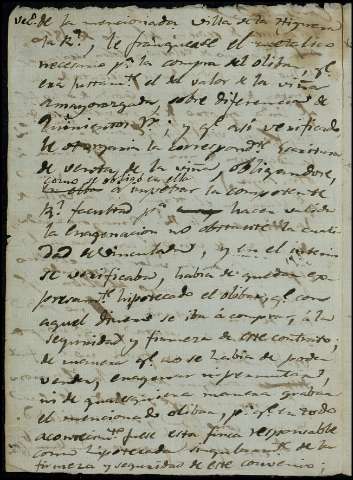 de la mencionada villa de la Higuera
la R.^l, le franquease el metalico
necesario p.^a la compra del olibar, q.^e
era justam.^te el del valor de la viña
amayorazgada, sobre diferencia de
quinientos r.^s, y q.^e asi verificado
le otorgaria la correspond.^te escritura
de venta de la viña, obligandose,
como se obligó en ella
a impetrar la competente
R.^l facultad p.^a hacer valida
la enagenacion no obstante la cuali
dad de vinculada, y en el interin
se verificaba, habia de quedar ex
presam.^te hipotecado el olibar, q.^e con
aquel dinero se iba á comprar, á la
seguridad y firmeza de este contrato;
de manera q.^e no se habia de poder
vender, enagenar ni permutar,
ni de qualesquiera manera grabar
el mencionado olibar, p.^s q.^e en todo
acontecim.^to fuese esta finca responsable
como hipotecada singularm.^te de la
firmeza y seguridad de este convenio;